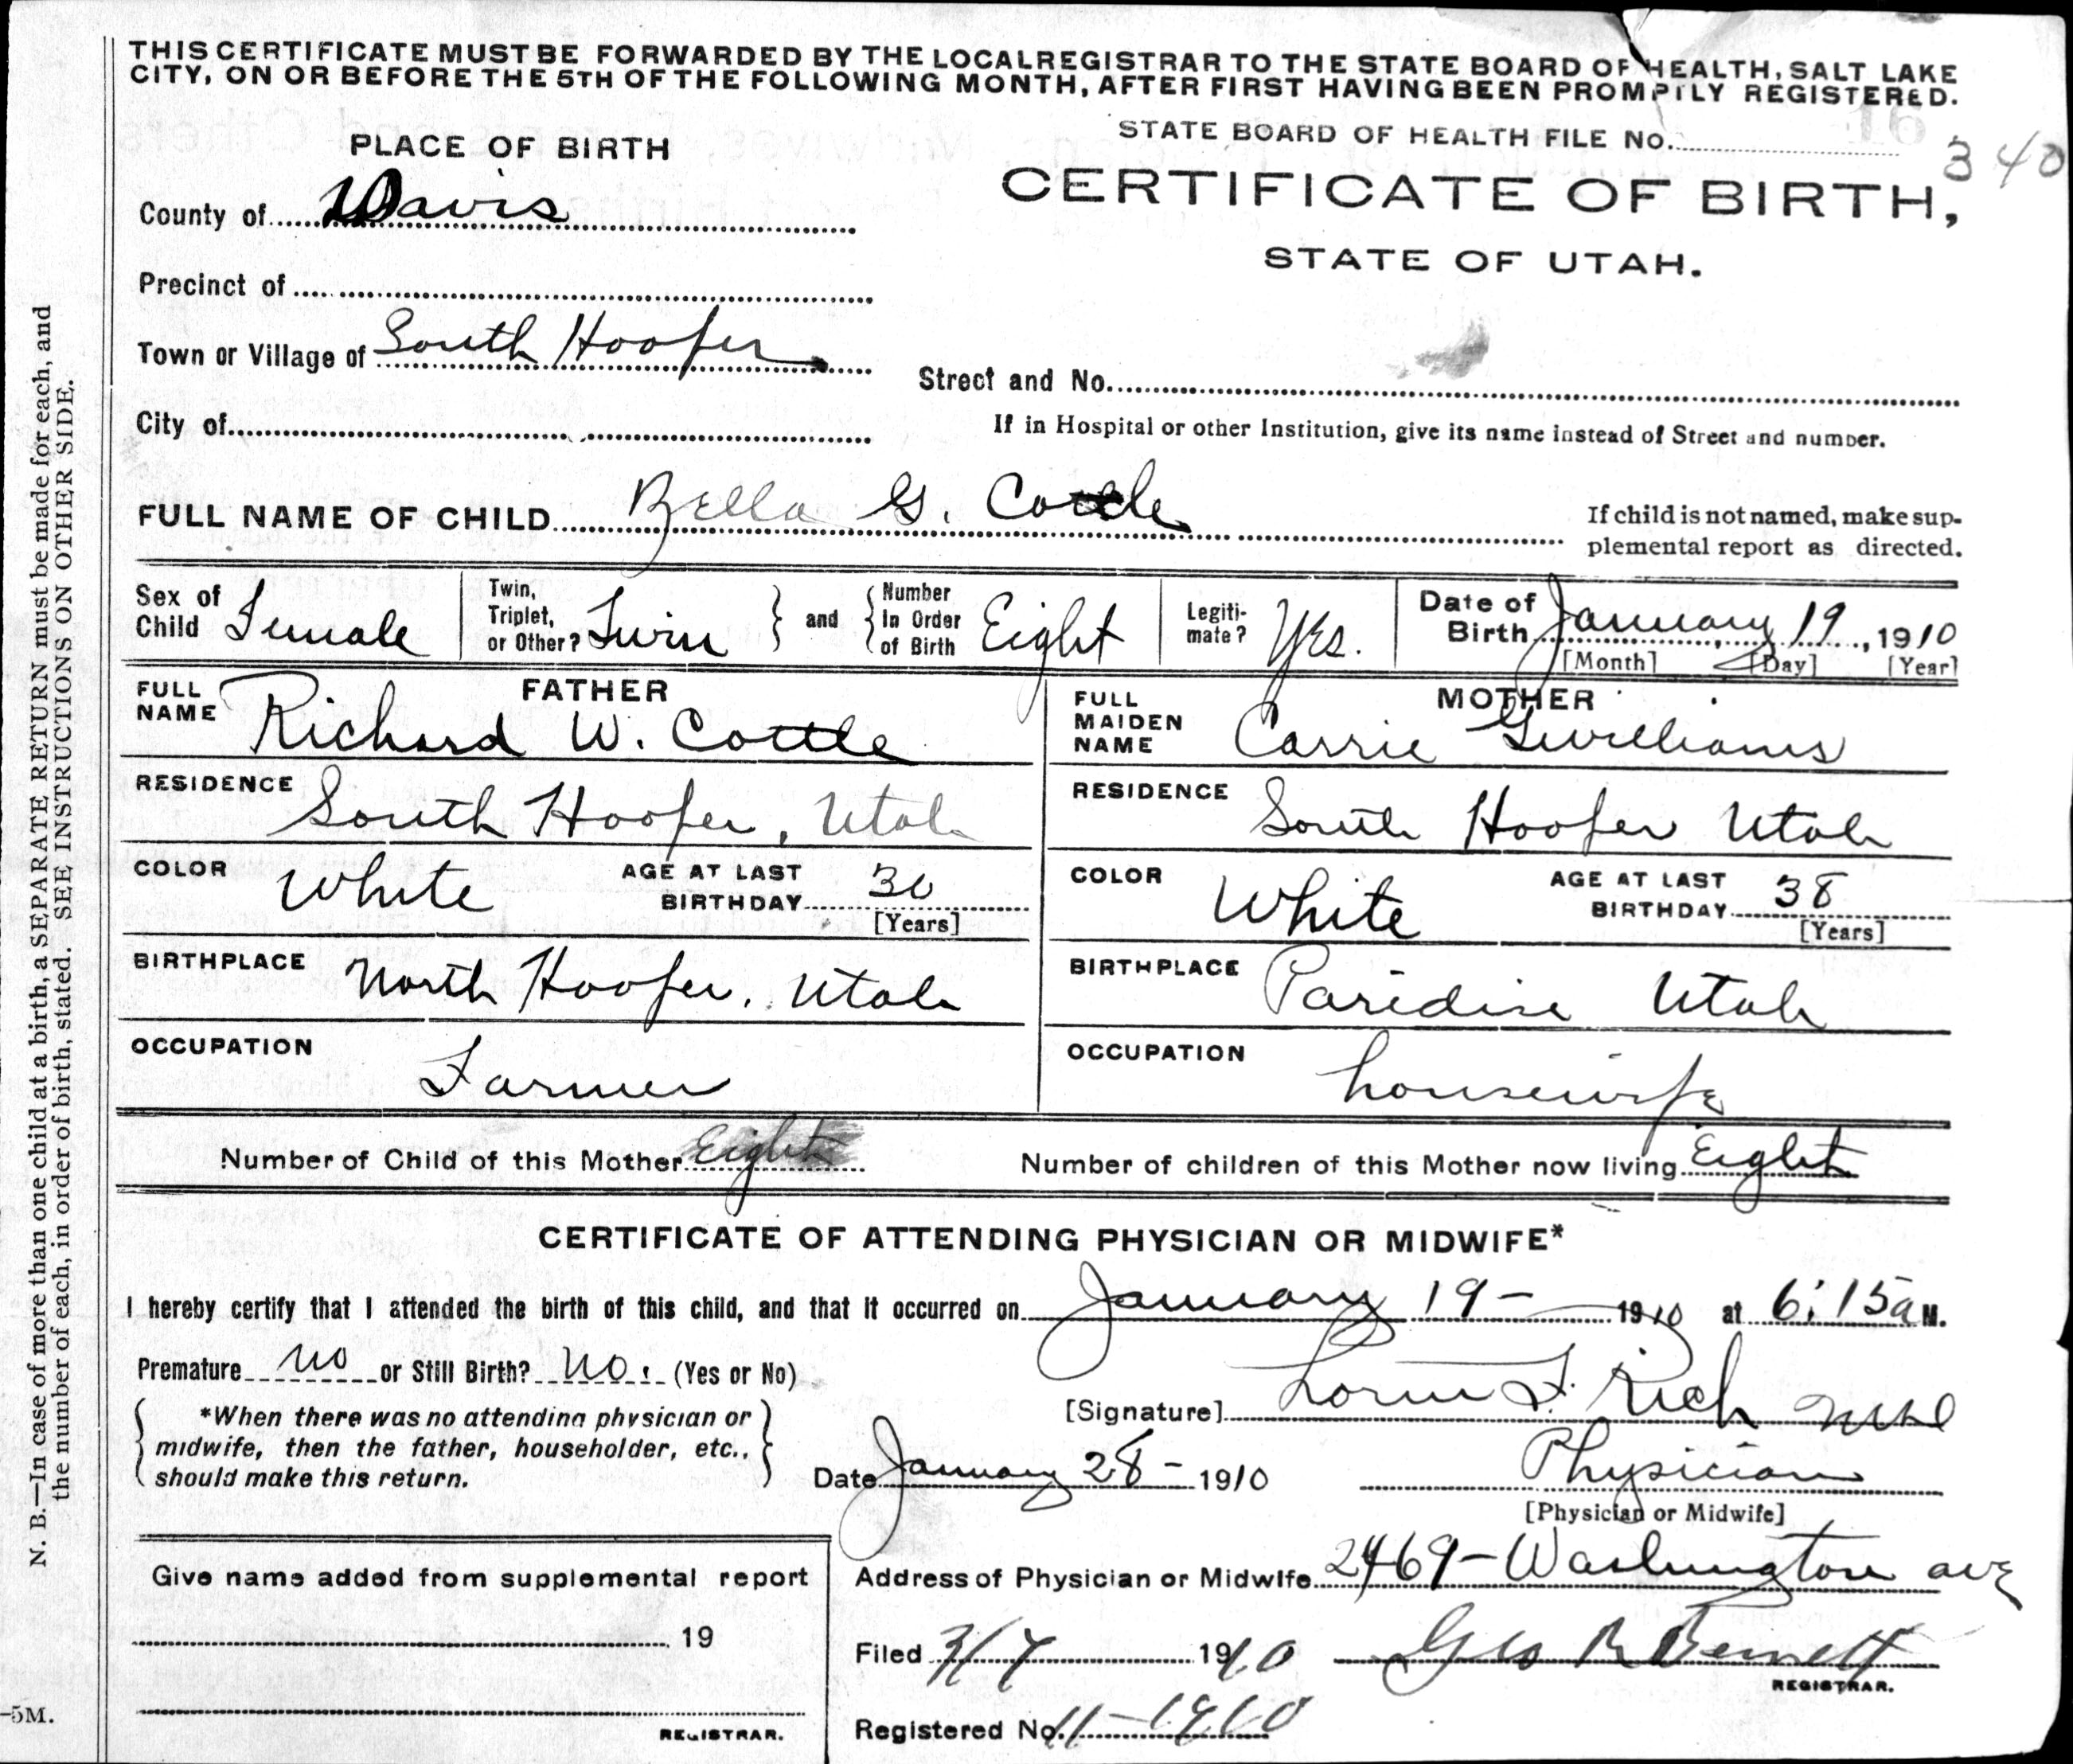 THIS CERTIFICATE MUST BE FORWARDED BY THE LOCAL REGISTRAR TO THE STATE BOARD OF HEALTH, SALT LAKE
CITY, ON OR BEFORE THE 5TH OF THE FOLLOWING MONTH, AFTER FIRST HAVING BEEN PROMPTLY REGISTERED.
STATE BOARD OF HEALTH FILE No.
340
PLACE OF BIRTH
CERTIFICATE OF BIRTH,
STATE OF UTAH.
County of Davis
Precinct of
Town or Village of South Hooper
Street and No.
City of
If in Hospital or other Institution, give its name instead of Street and number.
FULL NAME OF CHILD Bella G. Cottle
If child is not named, make sup-
plemental report as directed.
Sex of Child Female
Twin, Triplet, or Other? Twin
and
Number In Order of Birth Eight
Legiti-
mate? Yes.
Date of Birth January 19, 1910
[Month] [Day] [Year]
FATHER
FULL NAME Richard W. Cottle
RESIDENCE South Hooper, Utah
COLOR White
AGE AT LAST BIRTHDAY 30
[Years]
BIRTHPLACE North Hooper, Utah
OCCUPATION Farmer
MOTHER
FULL MAIDEN NAME Carrie Gwilliams
RESIDENCE South Hooper Utah
COLOR White
AGE AT LAST BIRTHDAY 38
[Years]
BIRTHPLACE Paridise Utah
OCCUPATION housewife
Number of Child of this Mother Eight
Number of children of this Mother now living Eight
CERTIFICATE OF ATTENDING PHYSICIAN OR MIDWIFE*
I hereby certify that I attended the birth of this child, and that it occurred on January 19 - 1910 at 6:15 a M.
Premature no or Still Birth? no. (Yes or No)
*When there was no attending physician or
midwife, then the father, householder, etc.,
should make this return.
[Signature] Lorin F. Rich MD
Date January 28 - 1910
Physician
[Physician or Midwife]
Give name added from supplemental report
19
REGISTRAR.
Address of Physician or Midwife 2469 - Washington ave
Filed 3/7 1910
Geo R Bennett
REGISTRAR.
Registered No. 11-1910
N. B.—In case of more than one child at a birth, a SEPARATE RETURN must be made for each, and
the number of each, in order of birth, stated. SEE INSTRUCTIONS ON OTHER SIDE.
-5M.